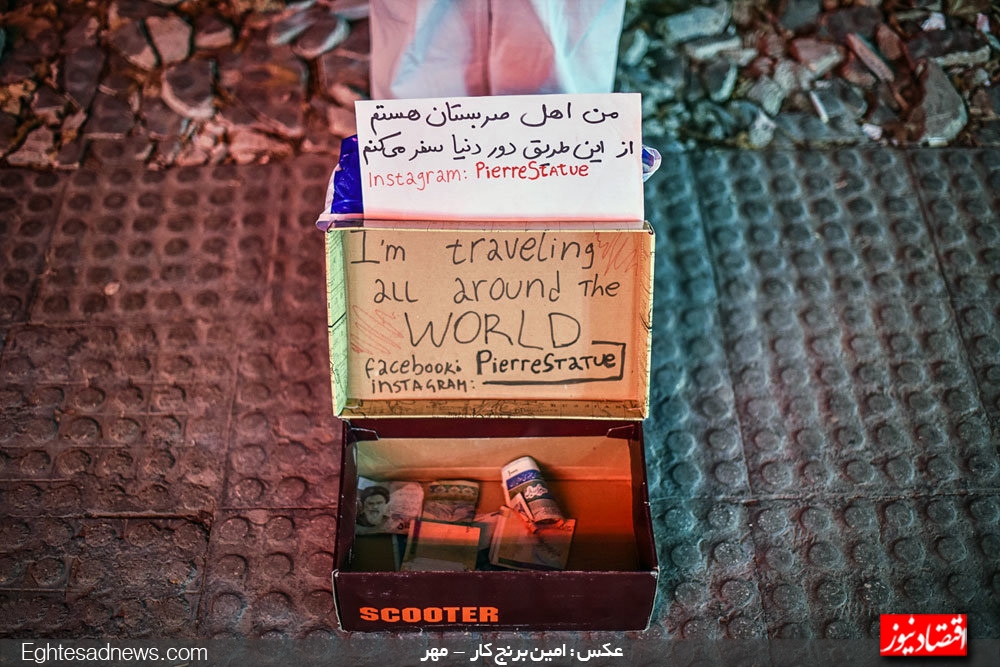 من اهل صربستان هستم
از این طریق دور دنیا سفر می‌کنم
Instagram: PierreStatue
I'm traveling
all around The
WORLD
facebook: PierreSTATUE
INSTAGRAM:
SCOOTER
Eghtesadnews.com
عکس: امین برنج‌کار - مهر
اقتصادنیوز